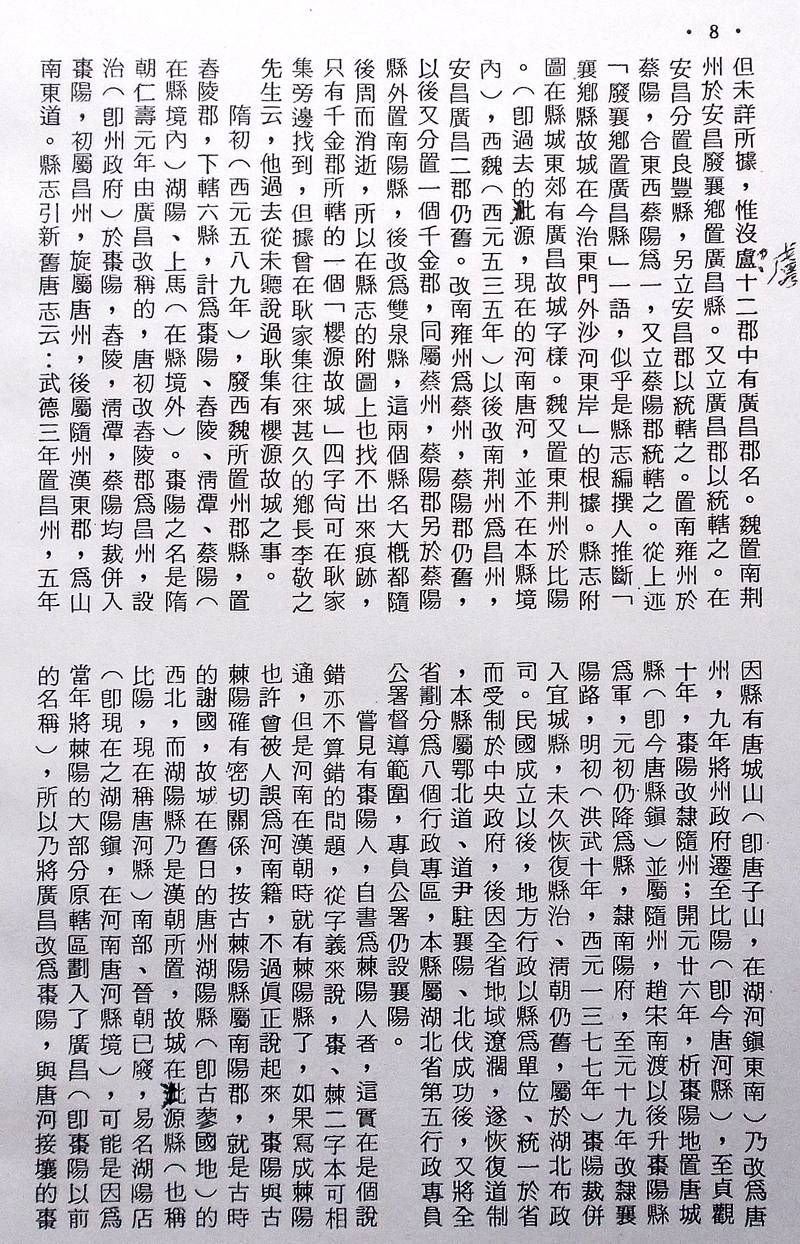 ·8·
但未詳所據，惟沒盧十二郡中有廣昌郡名。魏置南荆
州於安昌廢襄鄉置廣昌縣。又立廣昌郡以統轄之。在
安昌分置良豐縣，另立安昌郡以統轄之。置南雍州於
蔡陽，合東西蔡陽爲一，又立蔡陽郡統轄之。從上述
「廢襄鄉置廣昌縣」一語，似乎是縣志編撰人推斷「
襄鄉縣故城在今治東門外沙河東岸」的根據。縣志附
圖在縣城東郊有廣昌故城字樣。魏又置東荆州於比陽
。（卽過去的沘源，現在的河南唐河，並不在本縣境
內），西魏（西元五三五年）以後改南荆州爲昌州，
安昌廣昌二郡仍舊。改南雍州爲蔡州，蔡陽郡仍舊，
以後又分置一個千金郡，同屬蔡州，蔡陽郡另於蔡陽
縣外置南陽縣，後改爲雙泉縣，這兩個縣名大概都隨
後周而消逝，所以在縣志的附圖上也找不出來痕跡，
只有千金郡所轄的一個「櫻源故城」四字尙可在耿家
集旁邊找到，但據曾在耿家集往來甚久的鄉長李敬之
先生云，他過去從未聽說過耿集有櫻源故城之事。
隋初（西元五八九年），廢西魏所置州郡縣，置
舂陵郡，下轄六縣，計爲棗陽、舂陵、淸潭、蔡陽（
在縣境內）湖陽、上馬（在縣境外）。棗陽之名是隋
朝仁壽元年由廣昌改稱的，唐初改舂陵郡爲昌州，設
治（卽州政府）於棗陽，舂陵，淸潭，蔡陽均裁併入
棗陽，初屬昌州，旋屬唐州，後屬隨州漢東郡，爲山
南東道。縣志引新舊唐志云：武德三年置昌州，五年
因縣有唐城山（卽唐子山，在湖河鎭東南）乃改爲唐
州，九年將州政府遷至比陽（卽今唐河縣），至貞觀
十年，棗陽改隸隨州；開元廿六年，析棗陽地置唐城
縣（卽今唐縣鎭）並屬隨州，趙宋南渡以後升棗陽縣
爲軍，元初仍降爲縣，隸南陽府，至元十九年改隸襄
陽路，明初（洪武十年，西元一三七七年）棗陽裁併
入宜城縣，未久恢復縣治、淸朝仍舊，屬於湖北布政
司。民國成立以後，地方行政以縣爲單位、統一於省
而受制於中央政府，後因全省地域遼濶，遂恢復道制
，本縣屬鄂北道、道尹駐襄陽、北伐成功後，又將全
省劃分爲八個行政專區，本縣屬湖北省第五行政專員
公署督導範圍，專員公署仍設襄陽。
嘗見有棗陽人，自書爲棘陽人者，這實在是個說
錯亦不算錯的問題，從字義來說，棗、棘二字本可相
通，但是河南在漢朝時就有棘陽縣了，如果寫成棘陽
也許會被人誤爲河南籍，不過眞正說起來，棗陽與古
棘陽確有密切關係，按古棘陽縣屬南陽郡，就是古時
的謝國，故城在舊日的唐州湖陽縣（卽古蓼國地）的
西北，而湖陽縣乃是漢朝所置，故城在沘源縣（也稱
比陽，現在稱唐河縣）南部、晉朝已廢，易名湖陽店
（卽現在之湖陽鎭，在河南唐河縣境），可能是因爲
當年將棘陽的大部分原轄區劃入了廣昌（卽棗陽以前
的名稱），所以乃將廣昌改爲棗陽，與唐河接壤的棗